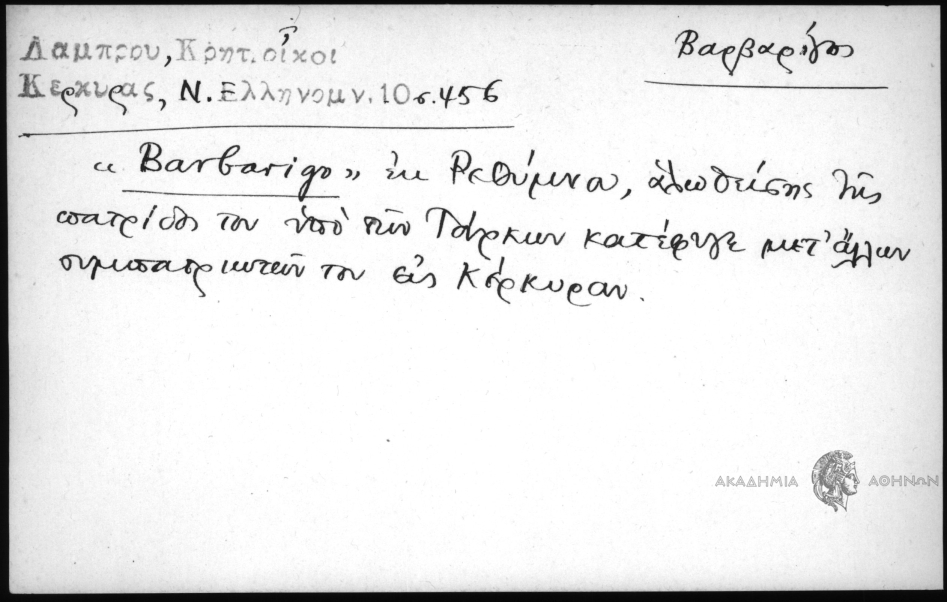 Λαμπρου, Κρητ. οἶκοι
Βαρβαρίγος
Κερκυρας, Ν. Ελληνομν. 10 σ. 456
« Barbarigo » ἐκ Ρεθύμνου, ἁλωθείσης τῆς
πατρίδος του ὑπὸ τῶν Τούρκων κατέφυγε μετ' ἄλλων
συμπατριωτῶν του εἰς Κέρκυραν.
ΑΚΑΔΗΜΙΑ ΑΘΗΝΩΝ